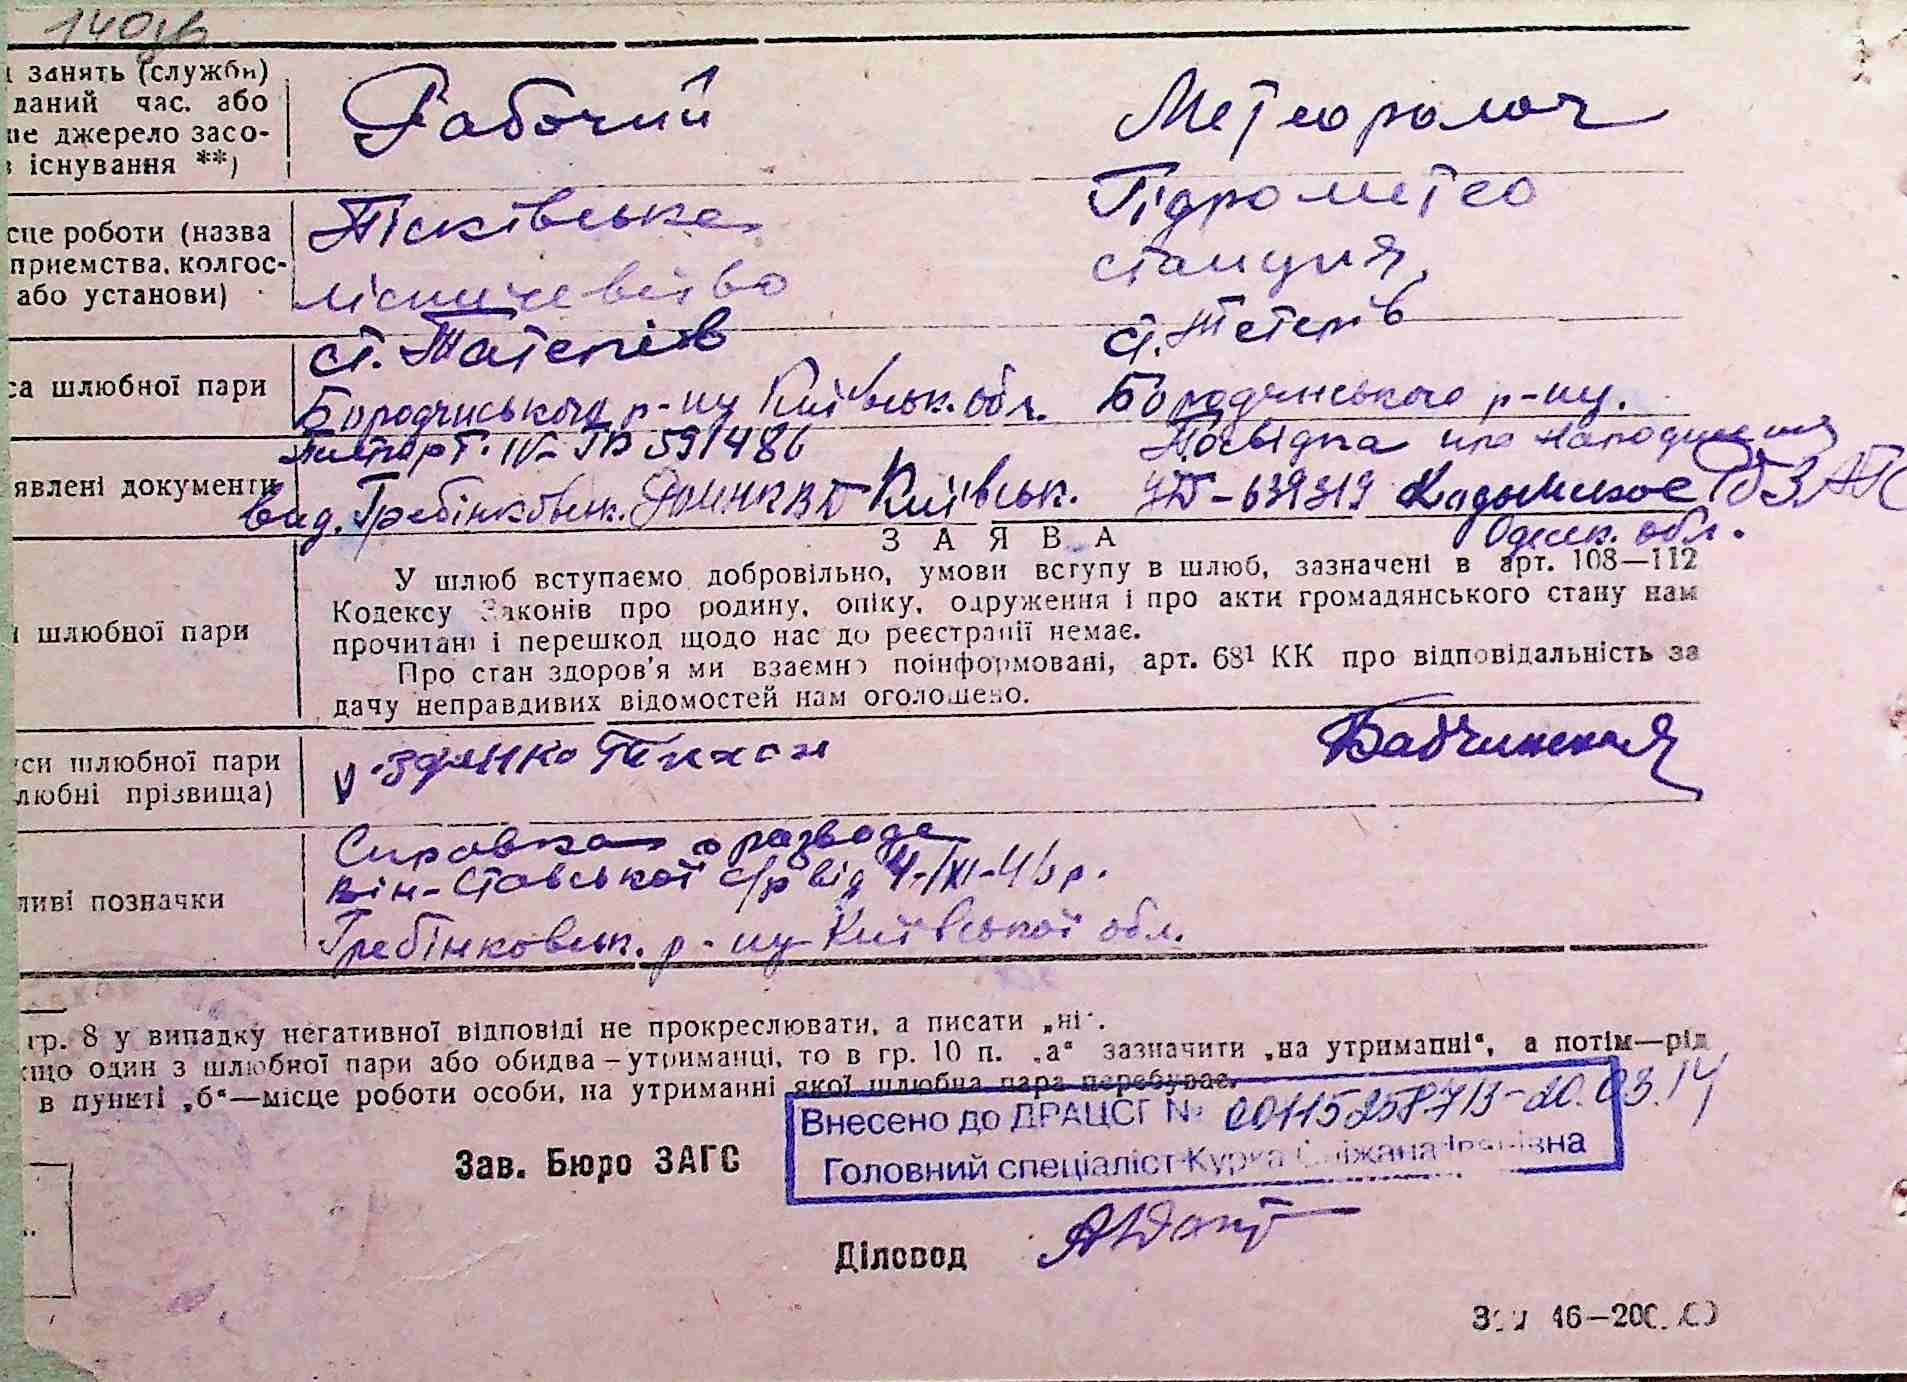 140зв
занять (служби)
даний час. або
ше джерело засо-
існування **)
Рабочий
Метеоролог
сце роботи (назва
приємства, колгос-
або установи)
Пісківське
лісничевство
Гідрометео
станция
са шлюбної пари
ст. Татерів
Бородянського р-ну Київськ. обл.
ст. Тетерів
Бородянського р-ну.
явлені документи
Паспорт. IV-ТВ 591486
вид. Гребінковськ. Київськ.
Посвідка про народження
УБ-639319 ЗАГС
Одеск. обл.
ЗАЯВА
шлюбної пари
У шлюб вступаємо добровільно, умови вступу в шлюб, зазначені в арт. 108—112
Кодексу Законів про родину, опіку, одруження і про акти громадянського стану нам
прочитані і перешкод щодо нас до реєстрації немає.
Про стан здоров'я ми взаємно поінформовані, арт. 68¹ КК про відповідальність за
дачу неправдивих відомостей нам оголошено.
си шлюбної пари
любні прізвища)
Тихон
Бабчинская
ливі позначки
Справка о разводе
він-Ставської с/р від 4-XI-46 р.
Гребінковськ. р-ну Київської обл.
гр. 8 у випадку негативної відповіді не прокреслювати, а писати „ні".
кщо один з шлюбної пари або обидва – утриманці, то в гр. 10 п. „а" зазначити „на утриманні", а потім—рід
в пункті „б"—місце роботи особи, на утриманні якої шлюбна пара перебуває.
Внесено до ДРАЦСГ № 00115258713-20.03.14
Головний спеціаліст Курка Сніжана Іванівна
Зав. Бюро ЗАГС
Діловод
46—200.